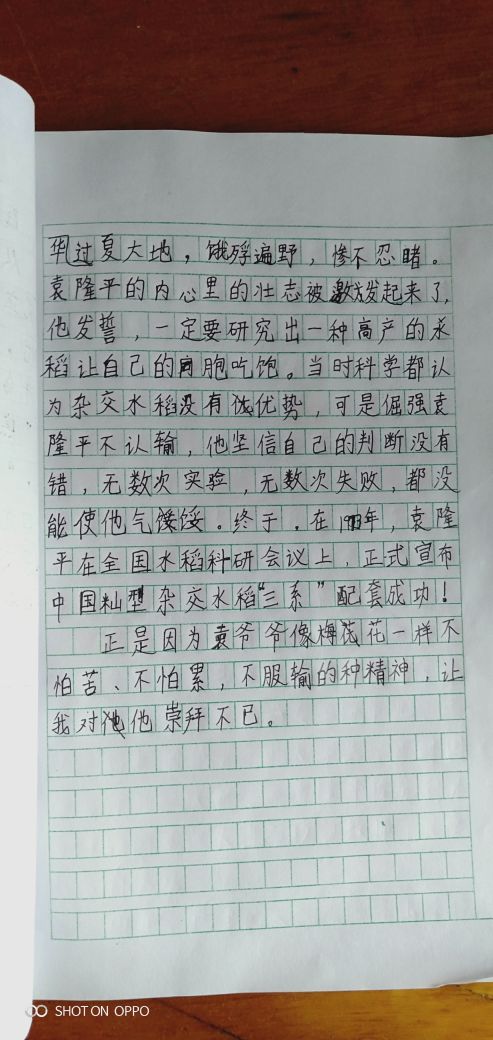 华过夏大地，饿殍遍野，惨不忍睹。
袁隆平的内心里的壮志被激发起来了，
他发誓，一定要研究出一种高产的水
稻让自己的同胞吃饱。当时科学都认
为杂交水稻没有优势，可是倔强袁
隆平不认输，他坚信自己的判断没有
错，无数次实验，无数次失败，都没
能使他气馁。终于．在1973年，袁隆
平在全国水稻科研会议上，正式宣布
中国籼型杂交水稻“三系”配套成功！
正是因为袁爷爷像梅花一样不
怕苦、不怕累，不服输的种精神，让
我对他崇拜不已。
SHOT ON OPPO